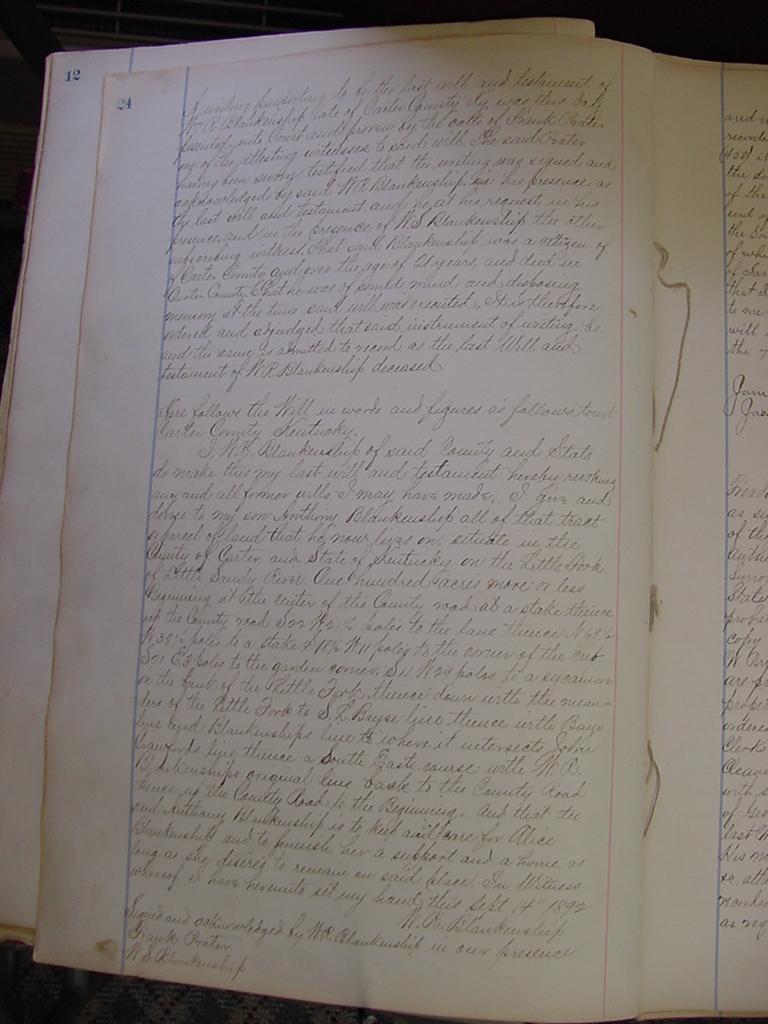 12
24
A writing purporting to be the last will and testament of
W. R. Blankenship late of Carter County Ky, was this day
produced into Court and proven by the oath of Frank Prater
one of the attesting witnesses to said will. The said Prater
having been sworn testified that the writing was signed and
acknowledged by said W. R. Blankenship in his presence as
the last will and testament, and he, at his request in his
presence, and in the presence of W. S. Blankenship the other
subscribing witness. That said Blankenship was a citizen of
of Carter County and over the age of 21 years, and died in
Carter County, that he was of sound mind and disposing
memory at the time said will was executed, It is therefore
ordered and adjudged that said instrument of writing be
and the same is admitted to record as the last Will and
testament of W. R. Blankenship deceased
Here follows the Will in words and figures as follows towit
Carter County Kentucky,
I, W. R. Blankenship of said County and State
do make this my last will and testament hereby revoking
any and all former wills I may have made. I give and
devise to my son Anthony Blankenship all of that tract
or parcel of land that he now lives on, situate in the
County of Carter and State of Kentucky on the Little Fork
of Little Sandy River. One hundred acres more or less
Beginning at the center of the County road at a stake thence
up the County road S 22 W 21½ poles to the lane thence N 69½
W 38½ poles to a stake S 18½ W 11 poles to the corner of the crib
S 21 E 3 poles to the garden corner, S 11 W 29 poles to a sycamore
on the bank of the Little Fork, thence down with the mean-
ders of the Little Fork to S. L. Bayse line thence with Bays
line and Blankenships line to where it intersects John
Crawfords line, thence a South East course with W. R.
Blankenships original line back to the County Road
thence up the County Road to the Beginning. And that the
said Anthony Blankenship is to keep and care for Alice
Blankenship and to furnish her a support and a home as
long as she desires to remain on said place. In Witness
whereof I have hereunto set my hand, this Sept 14" 1892
W. R. Blankenship
Signed and acknowledged by W. R. Blankenship in our presence
Frank Prater
W S Blankenship